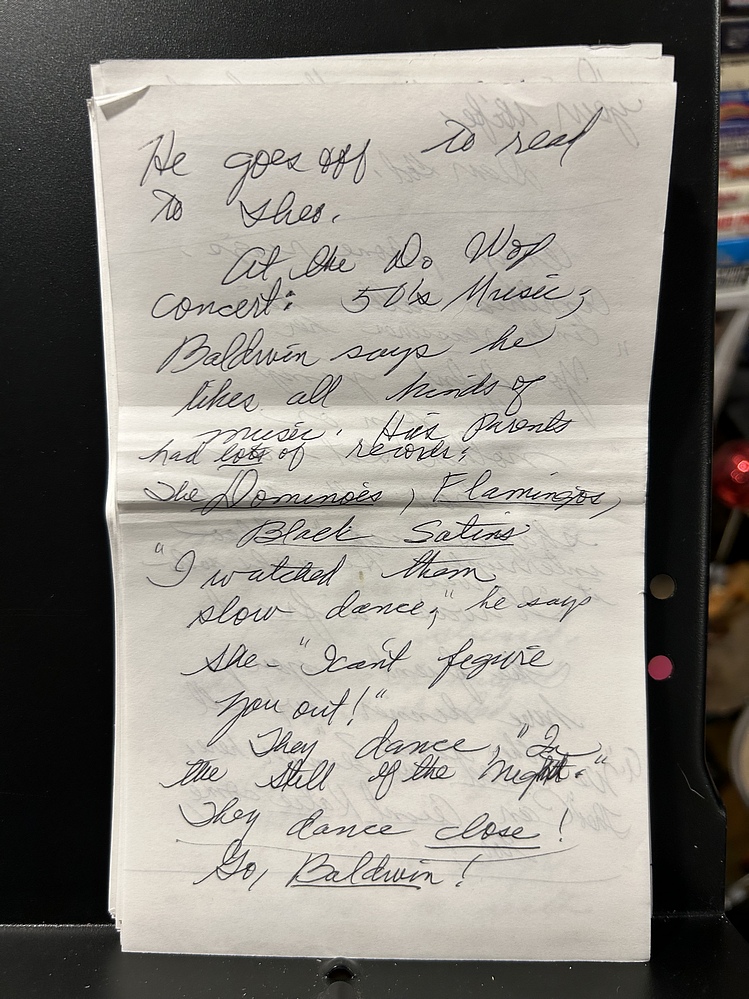 He goes off to read
to Theo.
At the Do Wop
concert: 50's Music;
Baldwin says he
likes all kinds of
music. His Parents
had lots of records:
The Dominoes, Flamingos,
Black Satins
"I watched them
slow dance," he says
She - "I can't fegure
you out!"
They dance, "In
the Still of the Night."
They dance close!
Go, Baldwin!